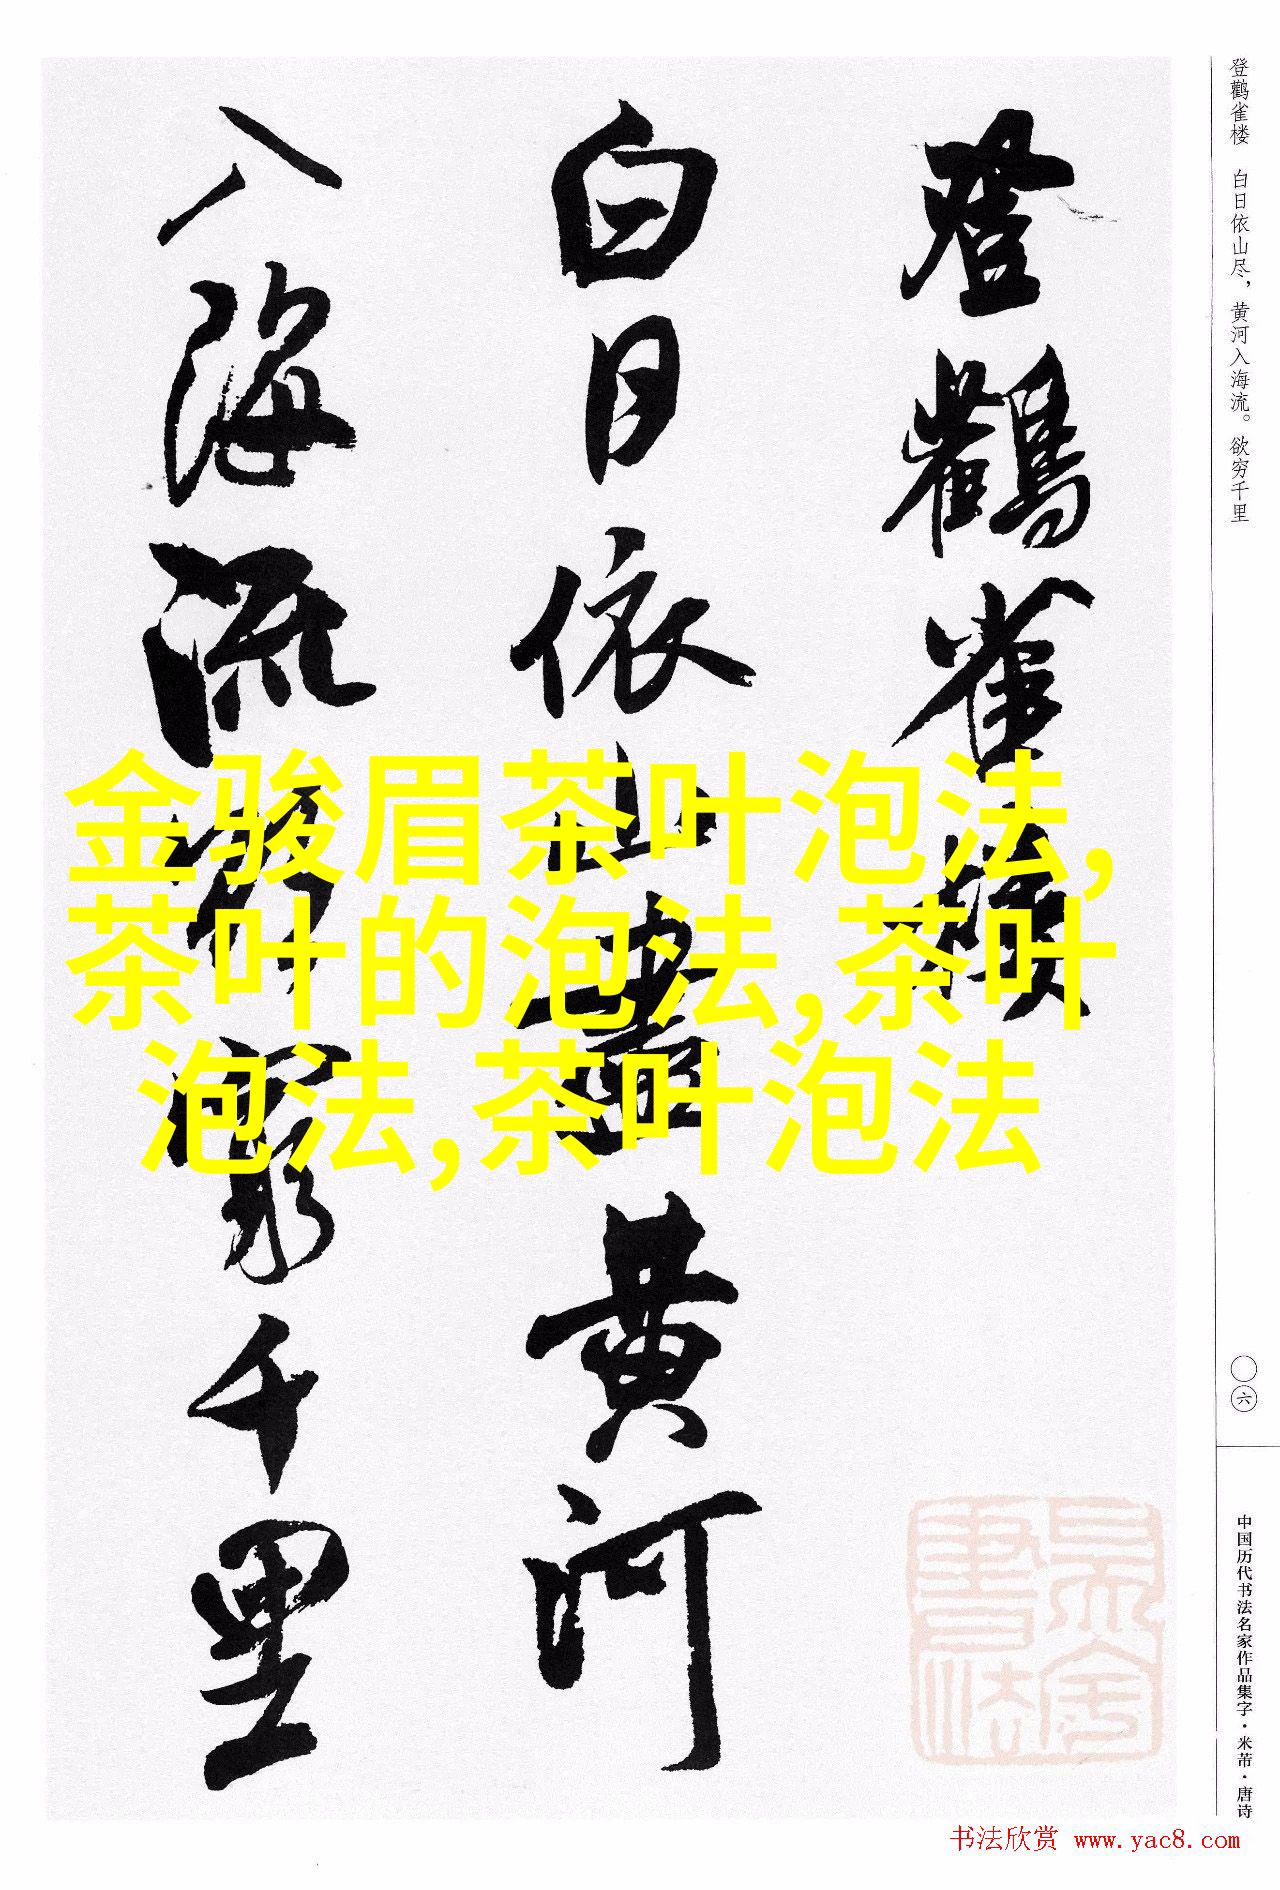 登鹳雀楼 白日依山尽，黄河入海流。欲穷千里
登鸛雀樓
白日依山盡黄河
入海流欲窮千里
金骏眉茶叶泡法,
茶叶的泡法,茶叶
泡法,茶叶泡法
〇六
中国历代书法名家作品集字·米芾·唐诗
书法欣赏 www.yac8.com